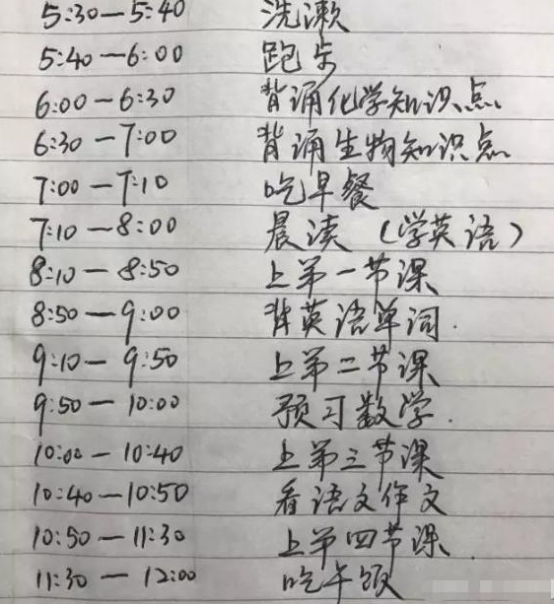 5:30—5:40 洗漱
5:40—6:00 跑步
6:00—6:30 背诵化学知识点
6:30—7:00 背诵生物知识点
7:00—7:10 吃早餐
7:10—8:00 晨读（学英语）
8:10—8:50 上第一节课
8:50—9:00 背英语单词.
9:10—9:50 上第二节课
9:50—10:00 预习数学.
10:00—10:40 上第三节课
10:40—10:50 看语文作文
10:50—11:30 上第四节课.
11:30—12:00 吃午饭